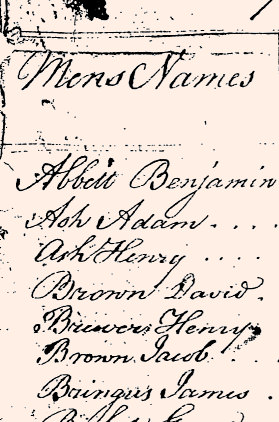 Mens Names
Abbett Benjamin
Ash Adam . . . .
Ash Henry . . . .
Brown David .
Brewer Henry
Brown Jacob .
Bringus James .